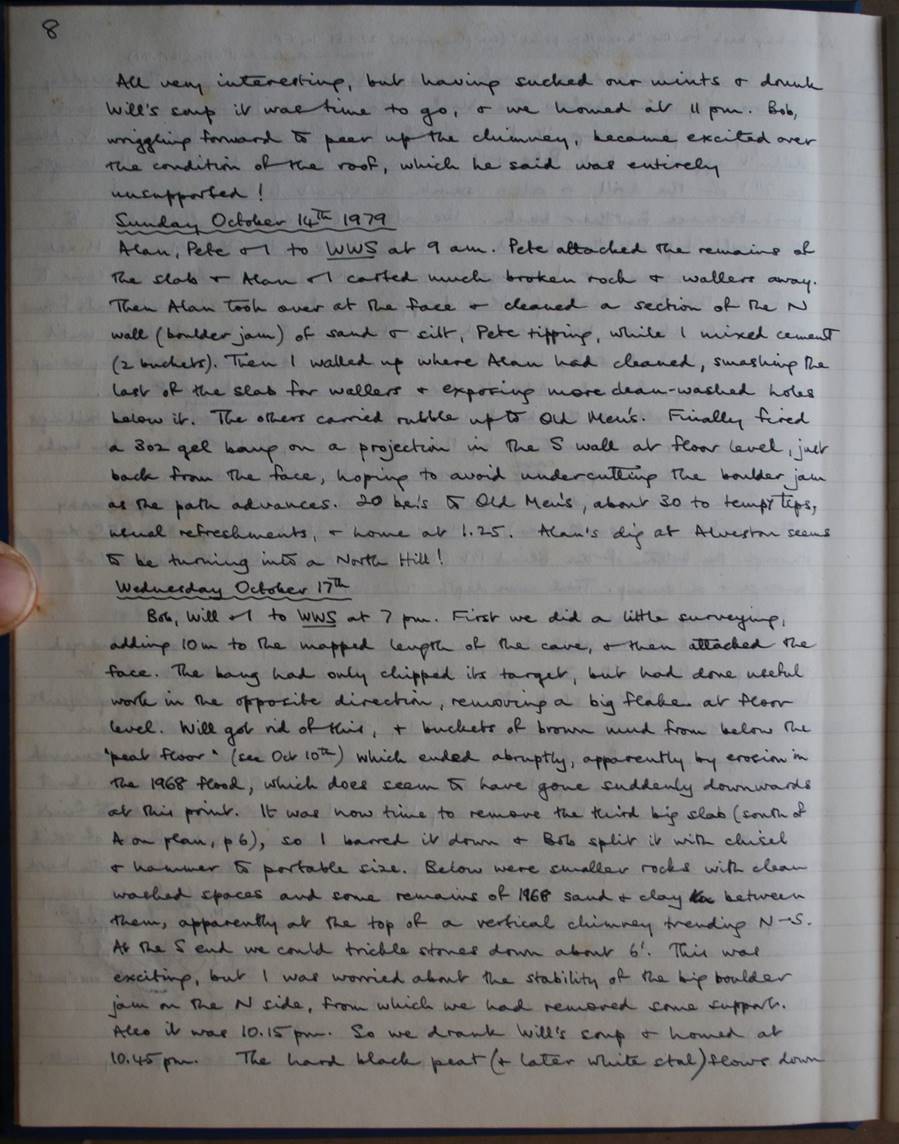 8
All very interesting, but having sucked our mints & drunk
Will's soup it was time to go, & we homed at 11 pm. Bob,
wriggling forward to peer up the chimney, became excited over
the condition of the roof, which he said was entirely
unsupported!
Sunday October 14th 1979
Alan, Pete & I to WWS at 9 am. Pete attacked the remains of
the slab & Alan & I carted much broken rock & wallers away.
Then Alan took over at the face & cleaned a section of the N
wall (boulder jam) of sand & silt, Pete tipping, while I mixed cement
(2 buckets). Then I walled up where Alan had cleaned, smashing the
last of the slab for wallers & exposing more clean-washed holes
below it. The others carried rubble up to Old Men's. Finally fired
a 3oz gel bang on a projection in the S wall at floor level, just
back from the face, hoping to avoid undercutting the boulder jam
as the path advances. 20 to Old Men's, about 30 to temp'y tips,
usual refreshments, & home at 1.25. Alan's dig at Alveston seems
to be turning into a North Hill!
Wednesday October 17th
Bob, Will & I to WWS at 7 pm. First we did a little surveying,
adding 10m to the mapped length of the cave, & then attacked the
face. The bang had only chipped its target, but had done useful
work in the opposite direction, removing a big flake at floor
level. Will got rid of this, & buckets of brown mud from below the
"peat floor" (see Oct 10th) which ended abruptly, apparently by erosion in
the 1968 flood, which does seem to have gone suddenly downwards
at this point. It was now time to remove the third big slab (south of
A on plan, p6), so I barred it down & Bob split it with chisel
& hammer to portable size. Below were smaller rocks with clean
washed spaces and some remains of 1968 sand & clay between
them, apparently at the top of a vertical chimney trending N-S.
At the S end we could trickle stones down about 6'. This was
exciting, but I was worried about the stability of the big boulder
jam on the N side, from which we had removed some support.
Also it was 10.15 pm. So we drank Will's soup & homed at
10.45 pm. The hard black peat (& later white stal) flows down